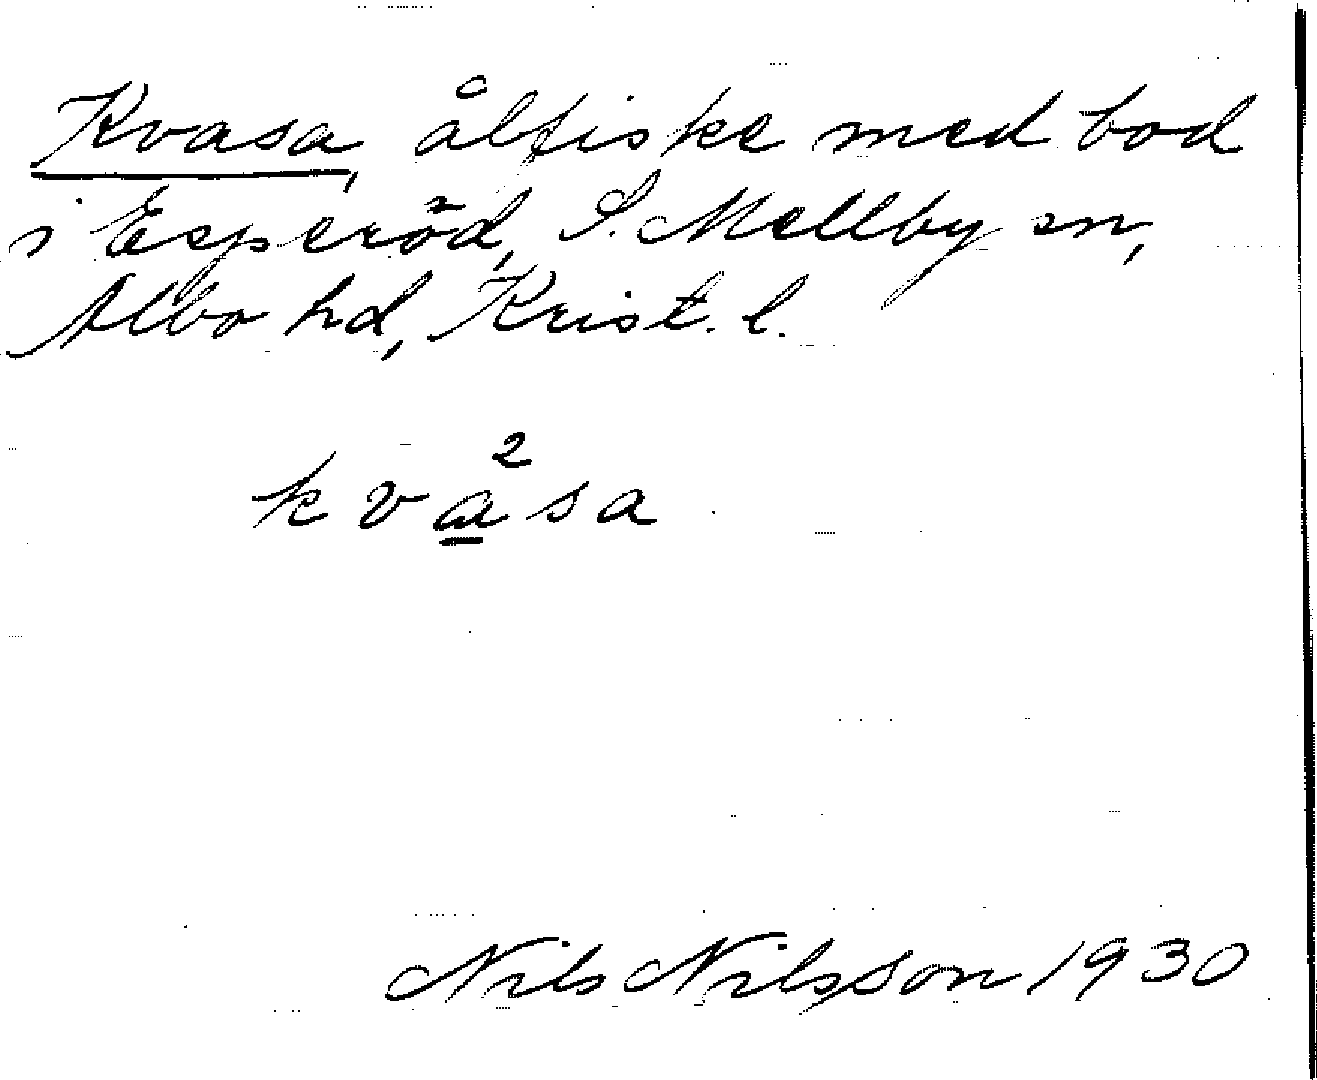 Kvasa, ålfiske med bod
i Esperöd, S. Mellby sn,
Albo hd, Krist. l.
kva²sa
Nils Nilsson 1930